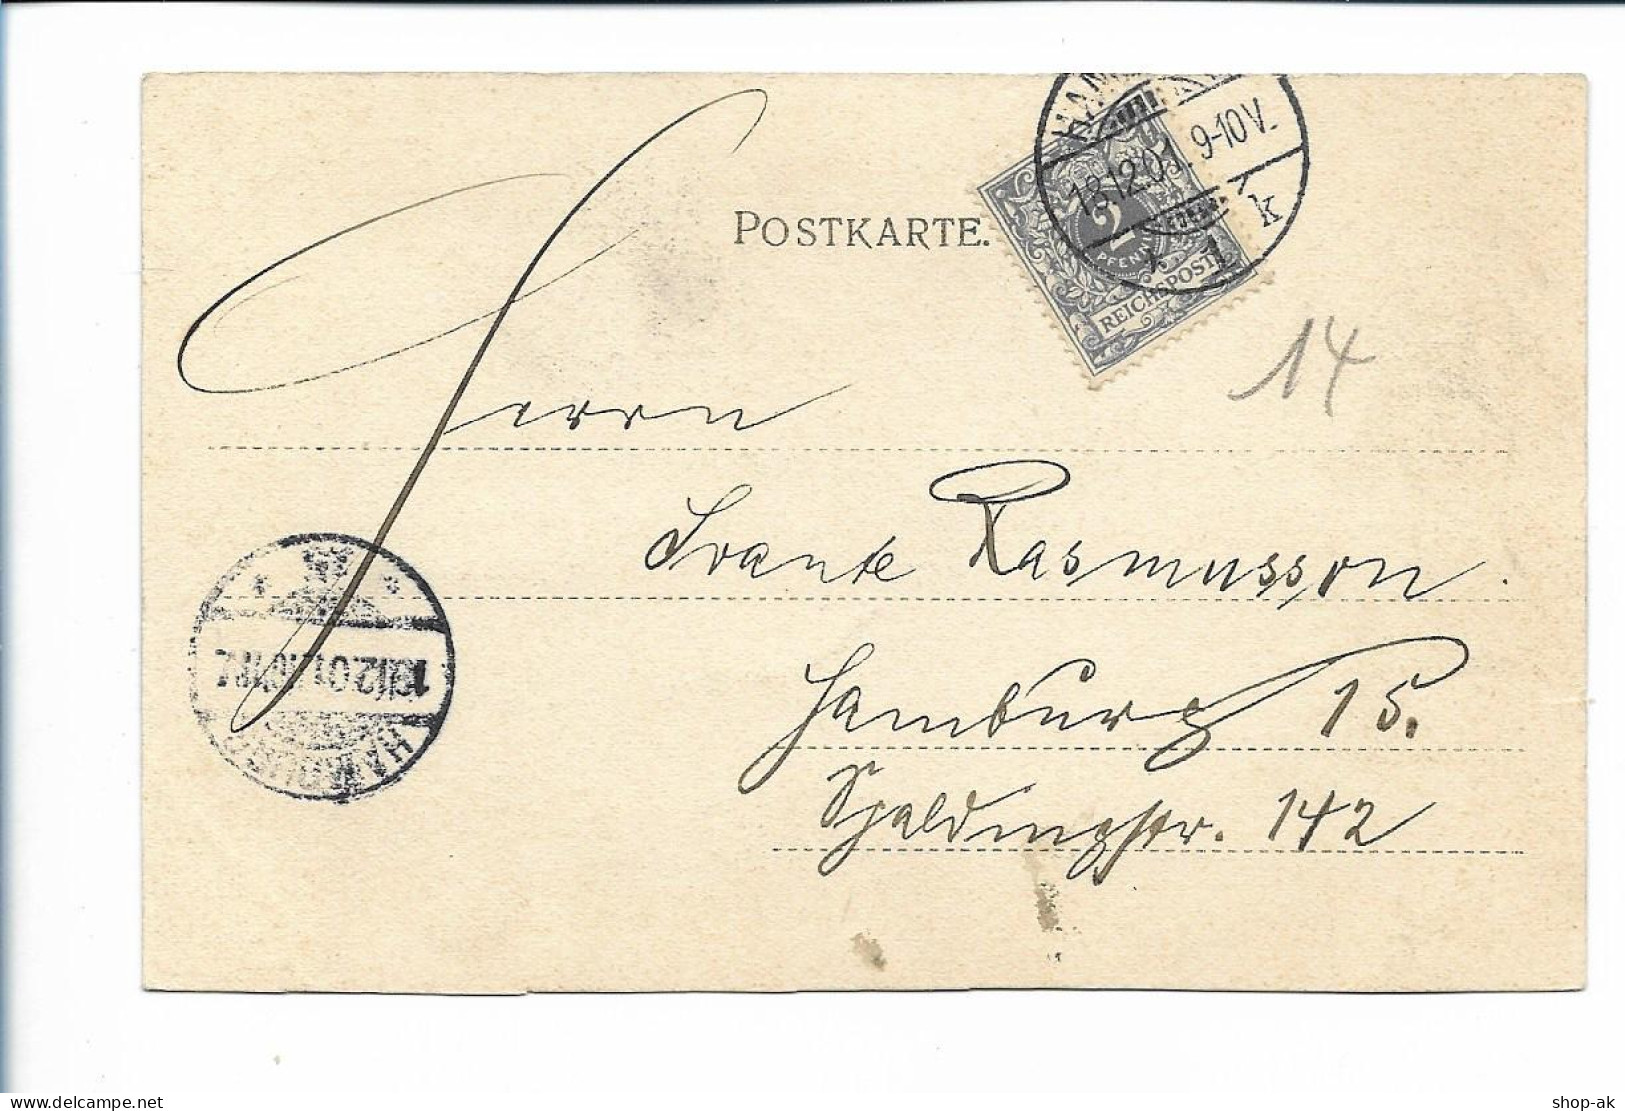 POSTKARTE.
HAM
18.12.01. 9-10V.
1 k
2
PFENNIG
REICHSPOST
14
Herrn
Svante Rasmusson.
Hamburg 15.
Spaldingstr. 142
HAMBURG
delcampe.net
shop-ak